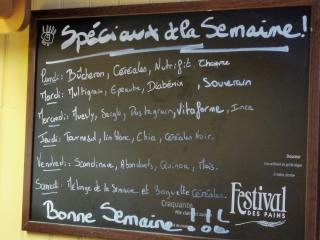 Spéciaux de la Semaine!
Lundi: Bûcheron, Céréales, Nutrifit. Chanvre
Mardi: Multigrain, Epeautre, Diabénix, Souverain
Mercredi: Muesly, Seigle, Pastagrain, Vitaforme, Inca
Jeudi: Tournesol, lin blanc, Chia, Céréales noir.
Vendredi: Scandinave, Abondants, Quinoa, Maïs.
Samedi: Mélange de la Semaine et Baguelle Céréales.
Bonne Semaine!!
Craquante
Festival
DES PAINS